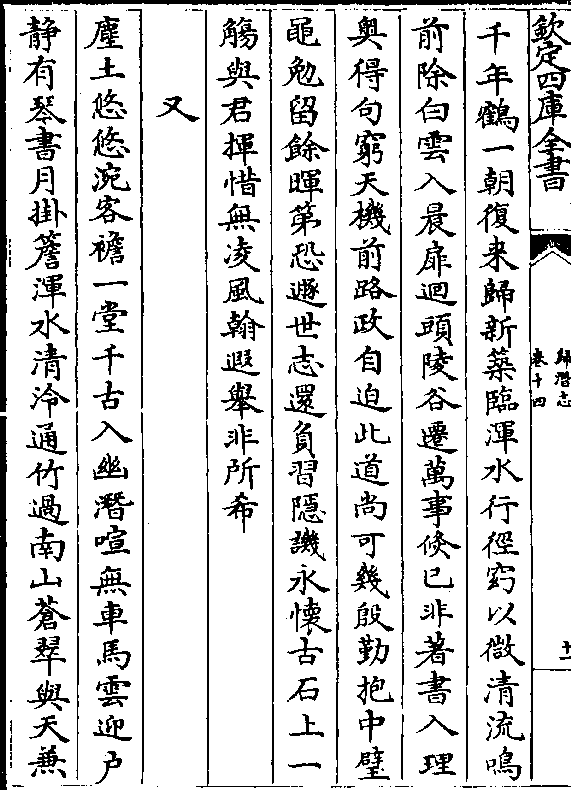 欽定四庫全書
歸潛志
卷十四
十一
千年鶴一朝復来歸新築臨渾水行徑窈以微清流鳴
前除白雲入晨扉迴頭陵谷遷萬事倐已非著書入理
奥得句窮天機前路政自迫此道尚可幾殷勤抱中璧
黽勉留餘暉第恐遯世志還負習隱譏永懷古石上一
觴與君揮惜無凌風翰遐舉非所希
又
塵土悠悠涴客襜一堂千古入幽潛喧無車馬雲迎户
静有琴書月掛簷渾水清泠通竹過南山蒼翠與天兼